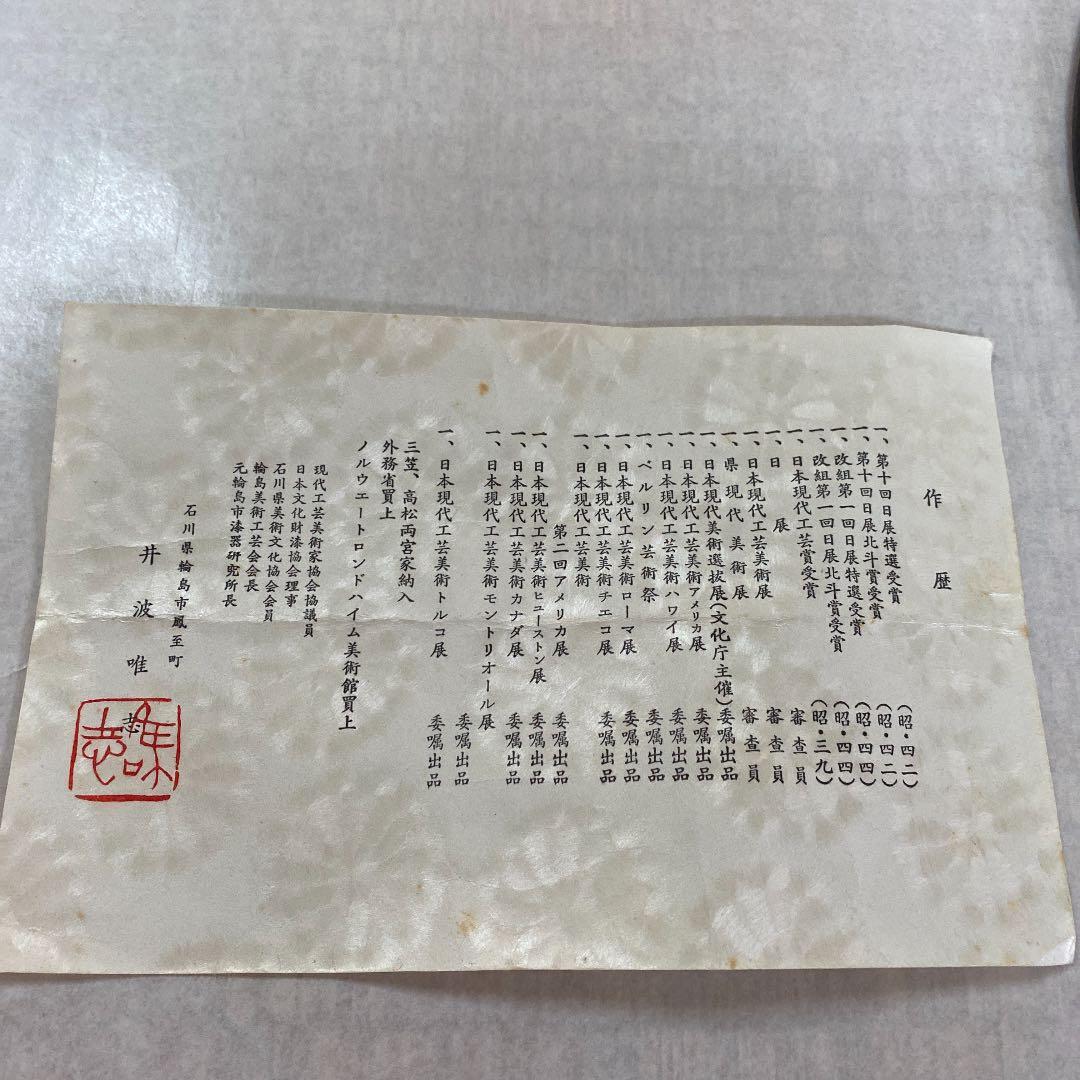 作歴
一、第十回日展特選受賞 (昭・四二)
一、第十回日展北斗賞受賞 (昭・四二)
一、改組第一回日展特選受賞 (昭・四四)
一、改組第一回日展北斗賞受賞 (昭・四四)
一、日本現代工芸賞受賞 (昭・三九)
一、日展 審査員
一、日本現代工芸美術展 審査員
一、県現代美術展 審査員
一、日本現代美術選抜展(文化庁主催) 委嘱出品
一、日本現代工芸美術アメリカ展 委嘱出品
一、日本現代工芸美術ハワイ展 委嘱出品
一、ベルリン芸術祭 委嘱出品
一、日本現代工芸美術ローマ展 委嘱出品
一、日本現代工芸美術チエコ展 委嘱出品
一、日本現代工芸美術
第二回アメリカ展 委嘱出品
一、日本現代工芸美術ヒューストン展 委嘱出品
一、日本現代工芸美術カナダ展 委嘱出品
一、日本現代工芸美術モントリオール展 委嘱出品
一、日本現代工芸美術トルコ展 委嘱出品
三笠、高松両宮家納入
外務省買上
ノルウエートロンドハイム美術館買上
現代工芸美術家協会協議員
日本文化財漆協会理事
石川県美術文化協会会員
輪島美術工芸会会長
元輪島市漆器研究所長
石川県輪島市鳳至町
井波唯志
唯志